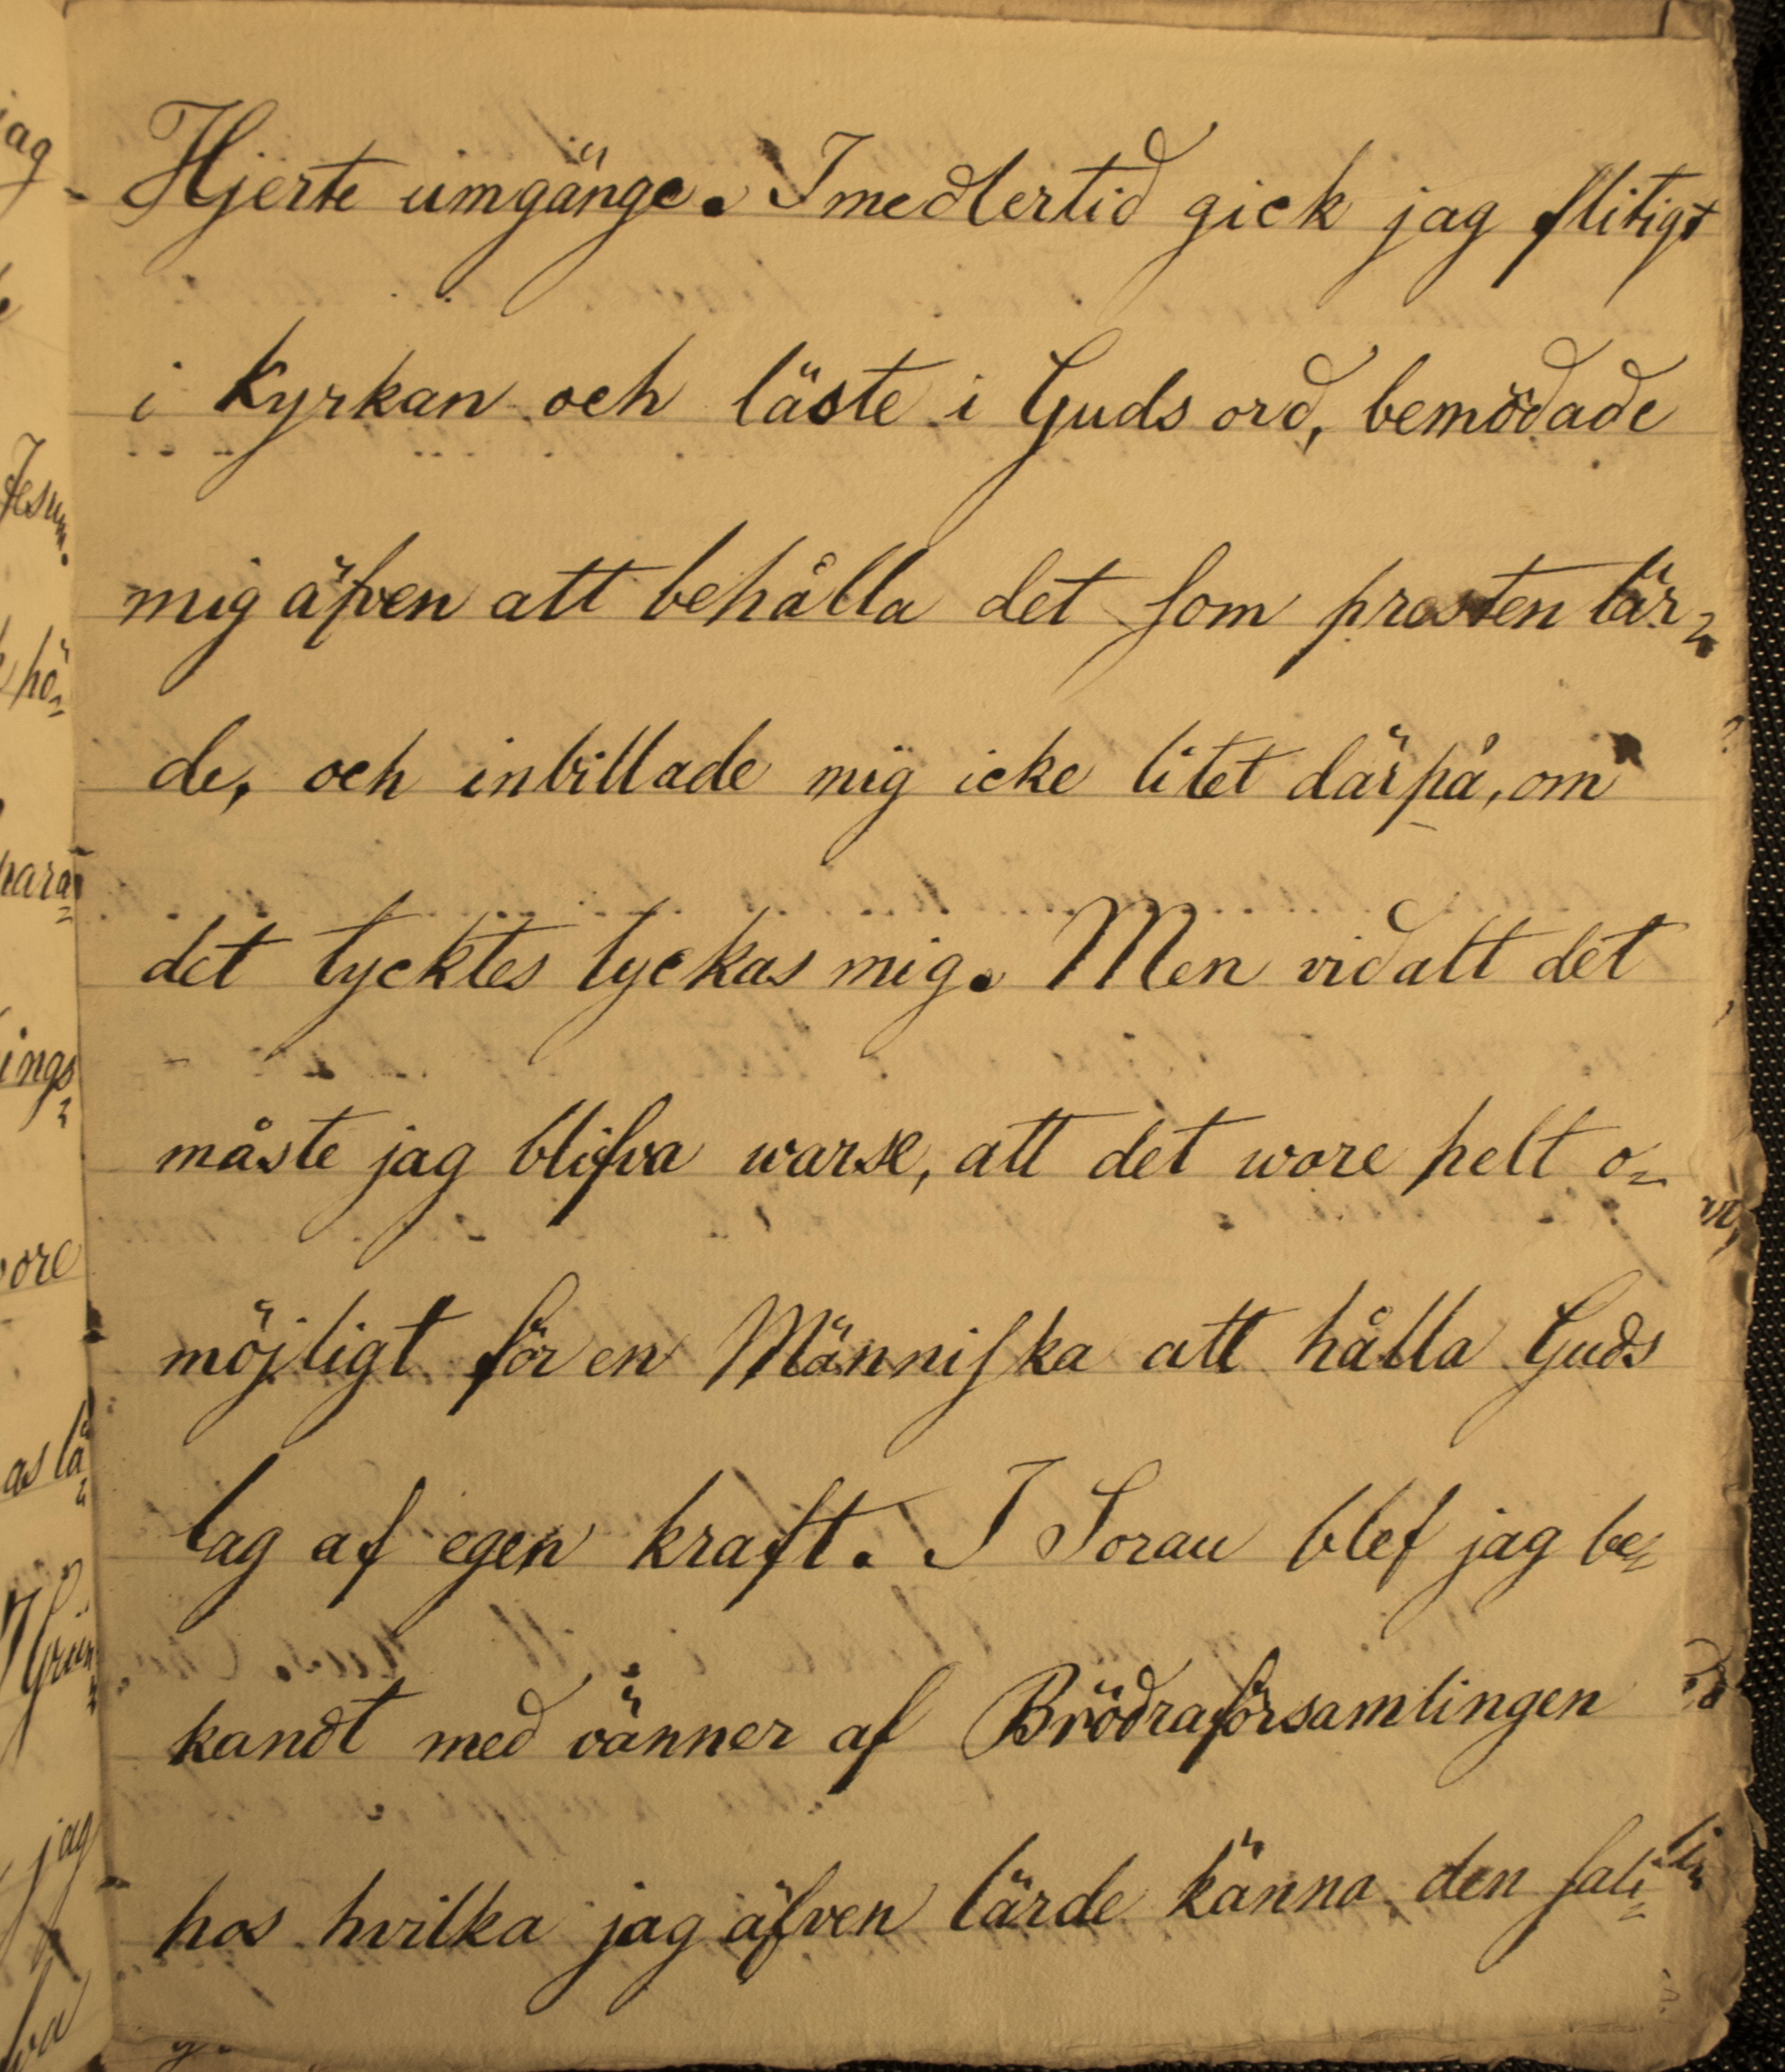 Hjerte umgänge. Imedlertid gick jag flitigt
i Kyrkan och läste i Guds ord, bemödade
mig äfven att behålla det som presten lär=
de, och inbillade mig icke litet därpå, om
det tycktes lyckas mig. Men vid att det
måste jag blifva warse, att det wore helt o=
möjligt för en Människa att hålla Guds
lag af egen kraft. I Sorau blef jag be=
kandt med vänner af Brödraförsamlingen
hos hvilka jag äfven lärde känna den sali=